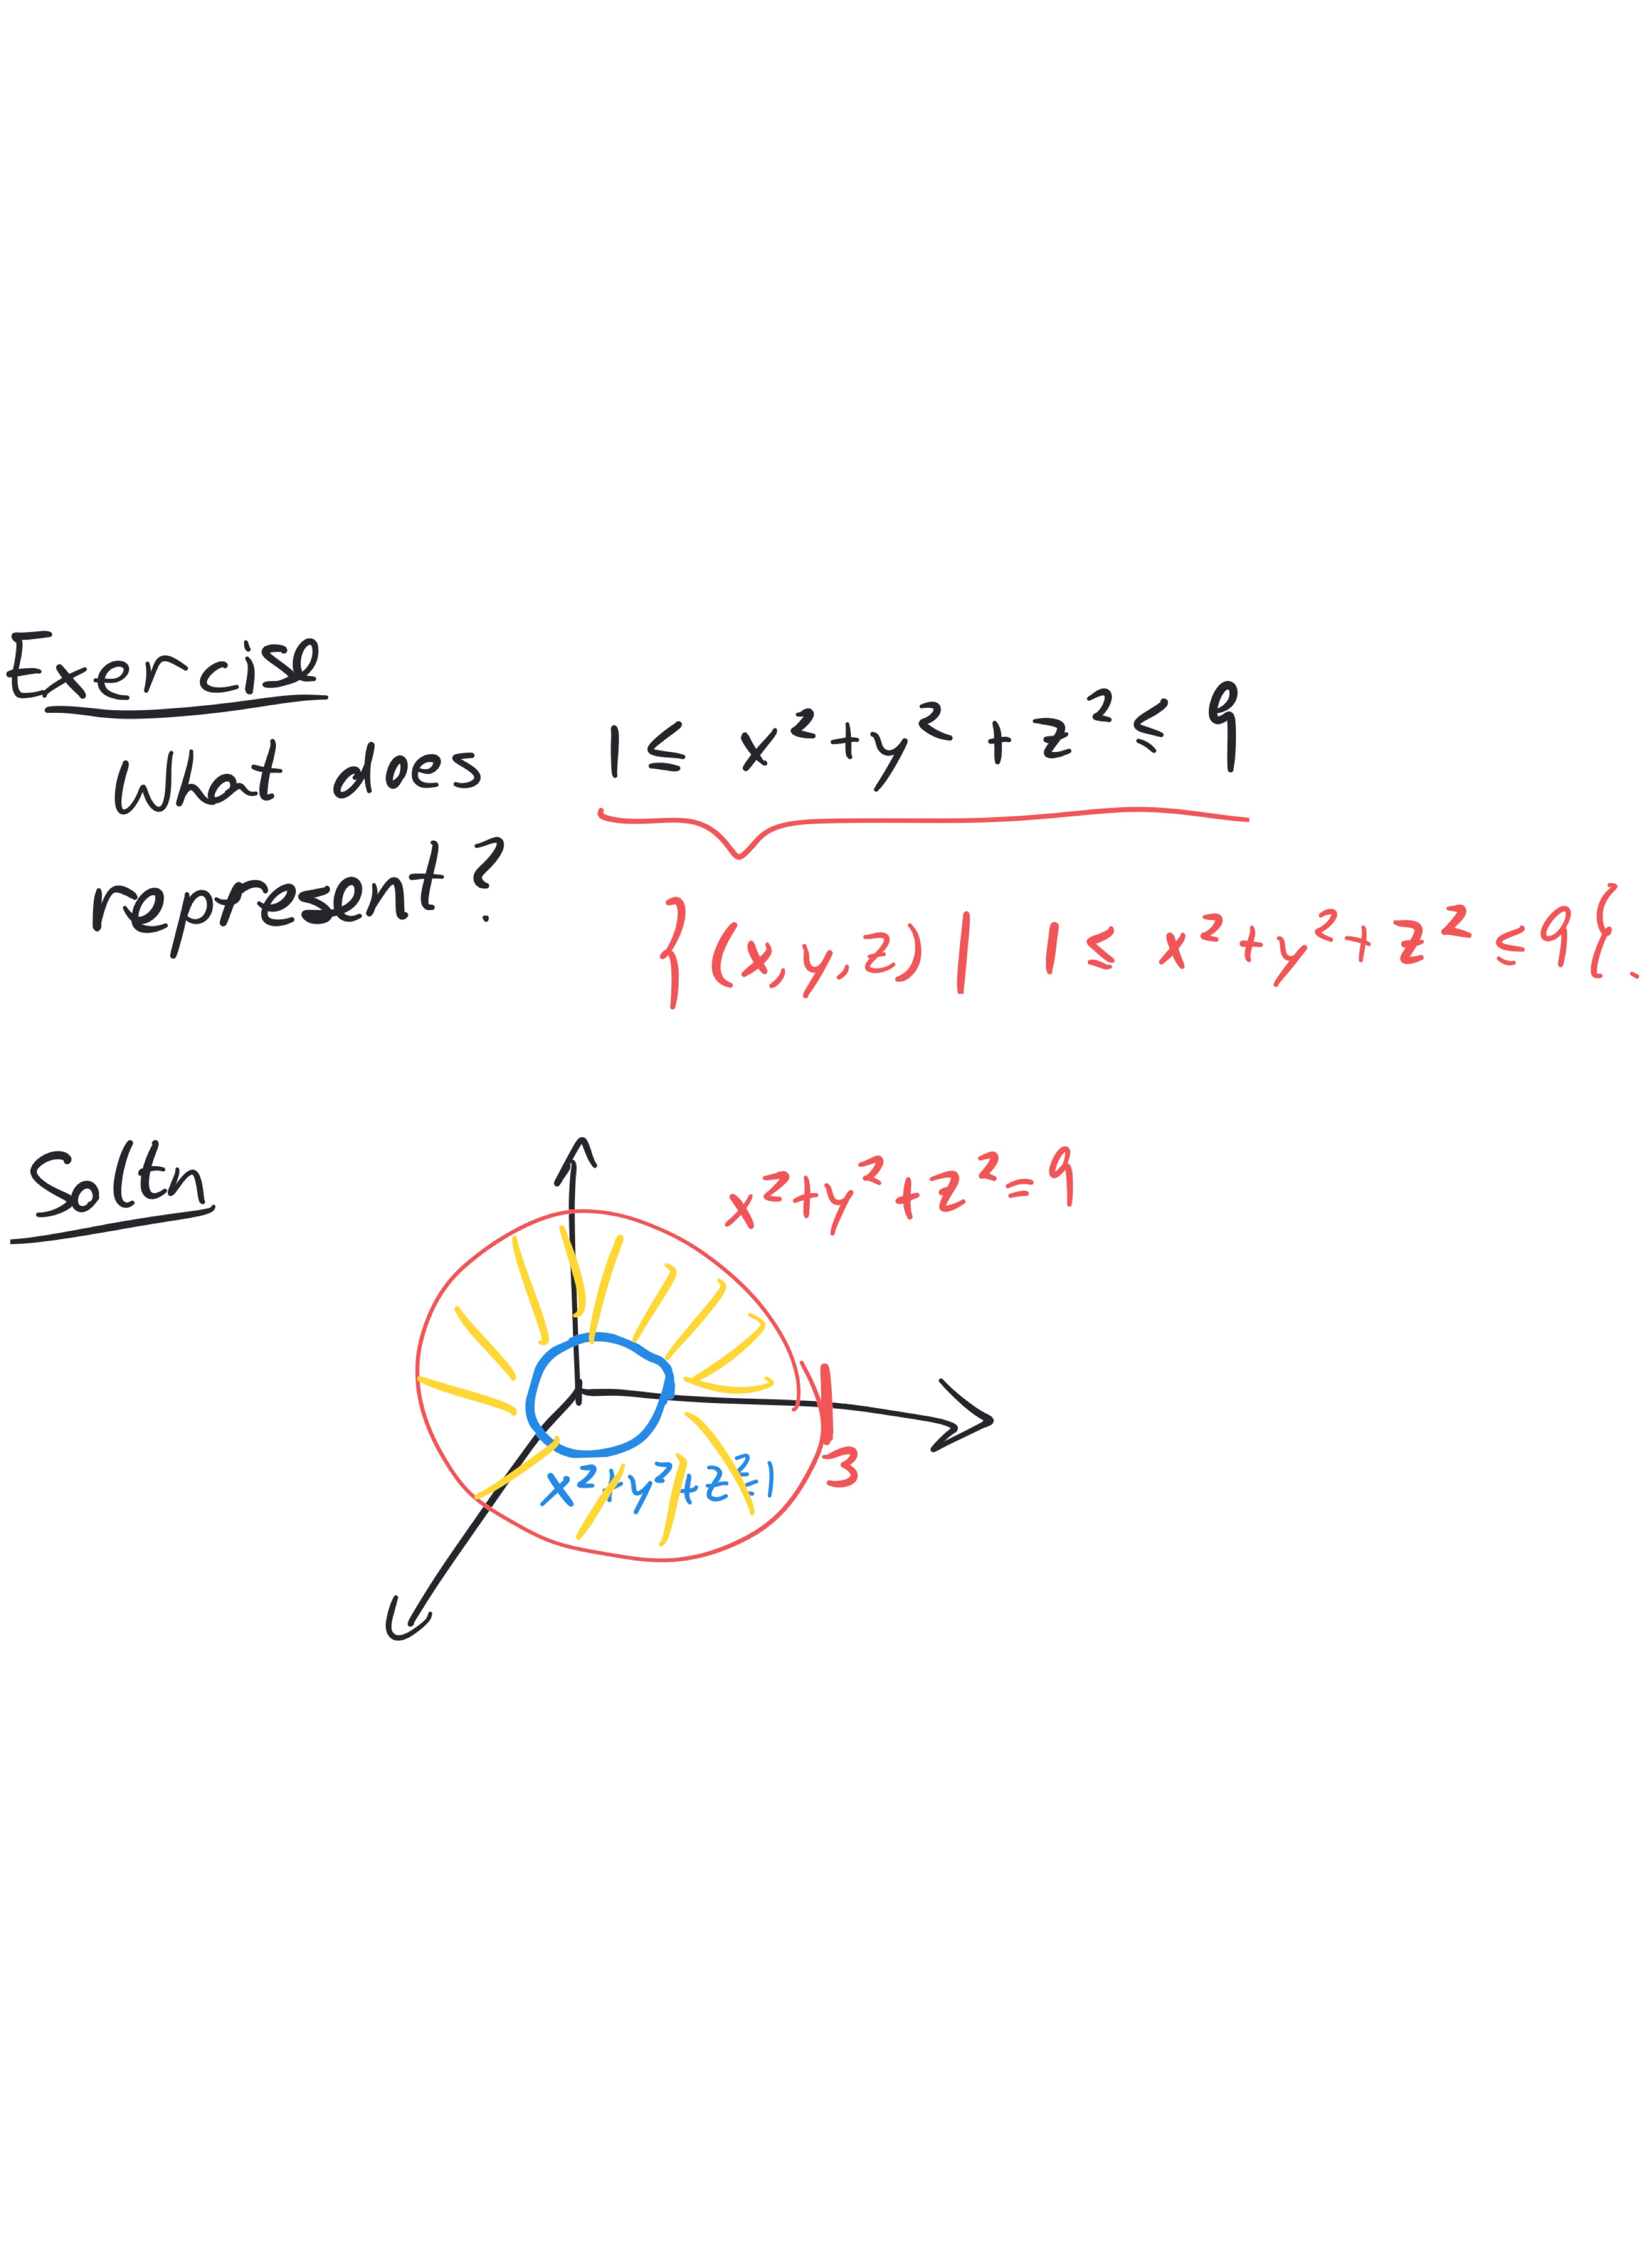 Exercise
What does 1 ≤ x² + y² + z² ≤ 9
represent?
{(x, y, z) | 1 ≤ x² + y² + z² ≤ 9}.
Soltn
x² + y² + z² = 9
3
x² + y² + z² = 1